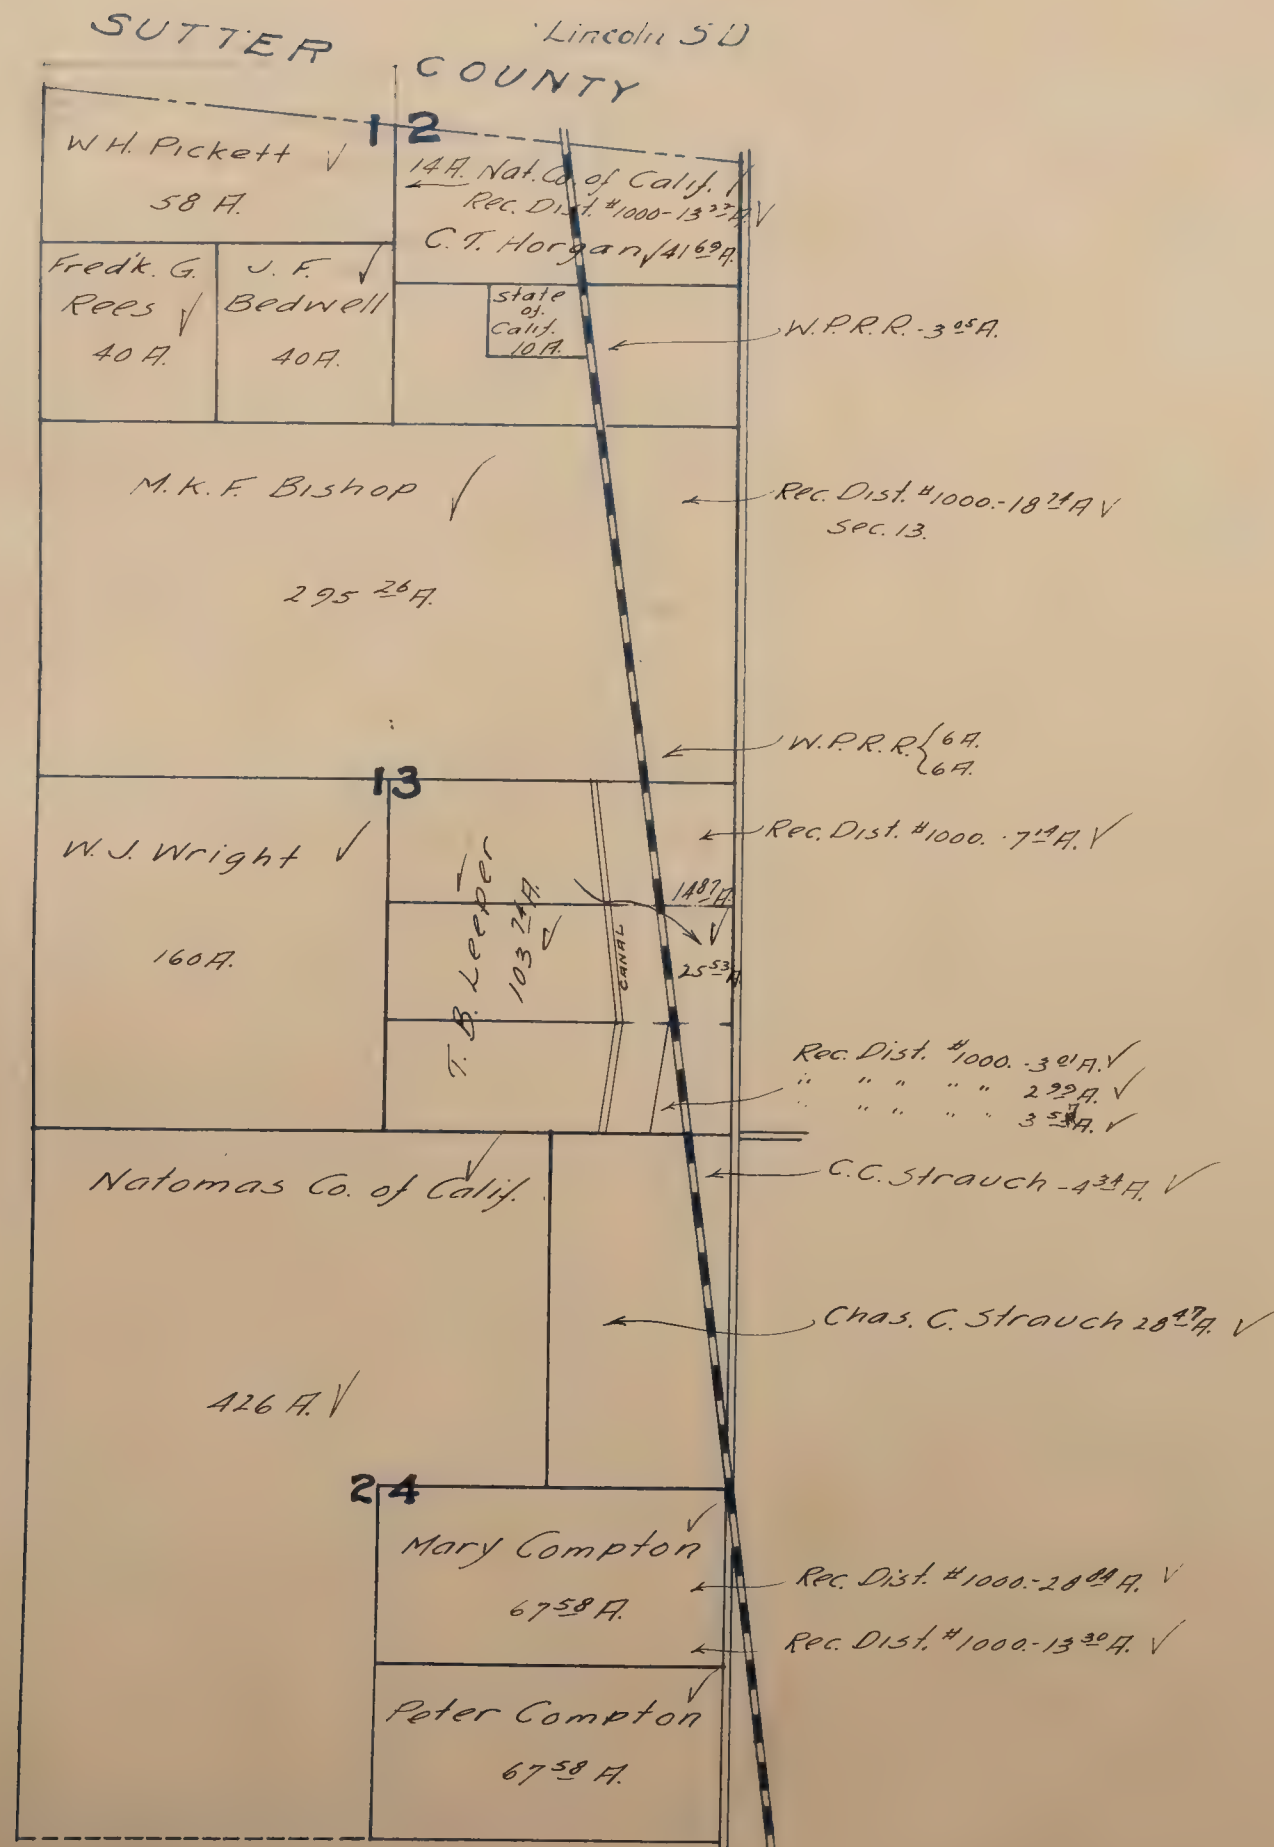 Lincoln S D
SUTTER COUNTY
12
W. H. Pickett ✓
58 A.
14 A. Nat. Co. of Calif. ✓
Rec. Dist. #1000-13 A. ✓
C. T. Horgan ✓ 41 69 A.
Fred'k. G.
Rees ✓
40 A.
J. F. ✓
Bedwell
40 A.
State
of.
Calif.
10 A.
W.P.R.R.-3 05 A.
M. K. F. Bishop ✓
295 26 A.
Rec. Dist. #1000.-18 74 A ✓
Sec. 13.
W.P.R.R. { 6 A.
6 A.
13
W. J. Wright ✓
160 A.
T. B. Leeper
103 74 A.
CANAL
Rec. Dist. #1000. -7 14 A. ✓
14 87 A.
25 53 A.
Rec. Dist. #1000. -3 01 A. ✓
" " " " " 2 99 A. ✓
" " " " " 3 A. ✓
Natomas Co. of Calif. ✓
426 A. ✓
C. C. Strauch -4 34 A. ✓
Chas. C. Strauch 28 47 A. ✓
24
Mary Compton ✓
67 58 A.
Rec. Dist. #1000.-28 84 A. ✓
Rec. Dist. #1000.-13 30 A. ✓
Peter Compton ✓
67 58 A.